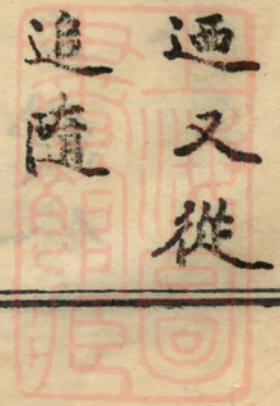 迺又從
追隨